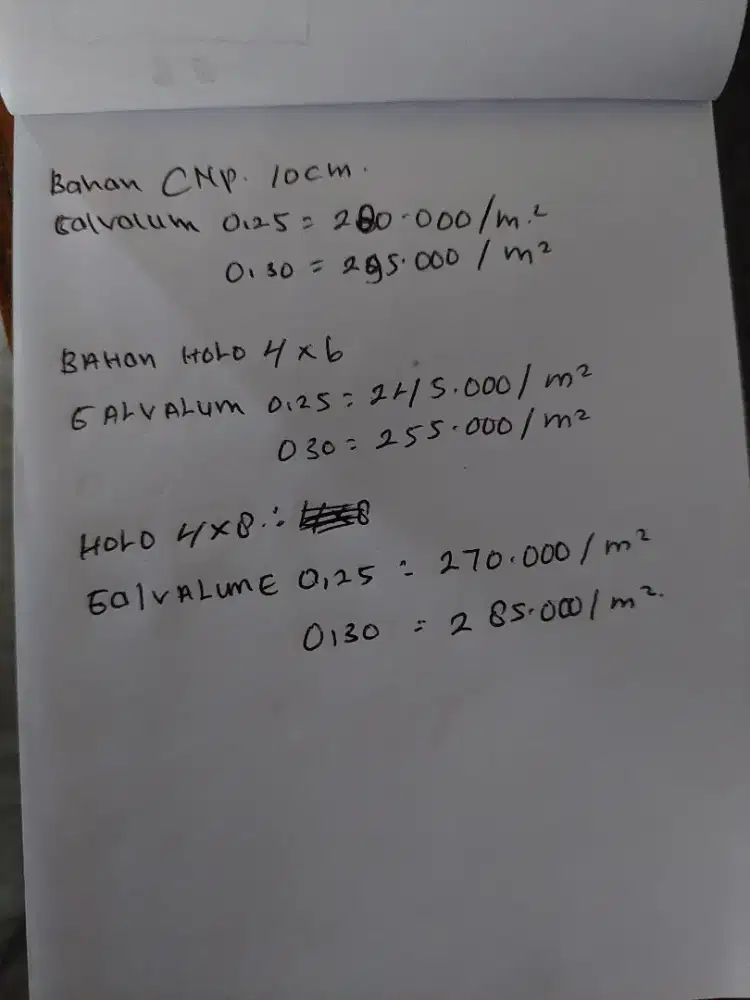 Bahan CNP. 10cm.
Galvalum 0,25 = 280.000/m²
0,30 = 295.000 / m²
BAHAN HOLO 4 x 6
GALVALUM 0,25 = 245.000/ m²
030 = 255.000/m²
HOLO 4x8 :
GalVALUME 0,25 = 270.000/m²
0,30 = 285.000/m².